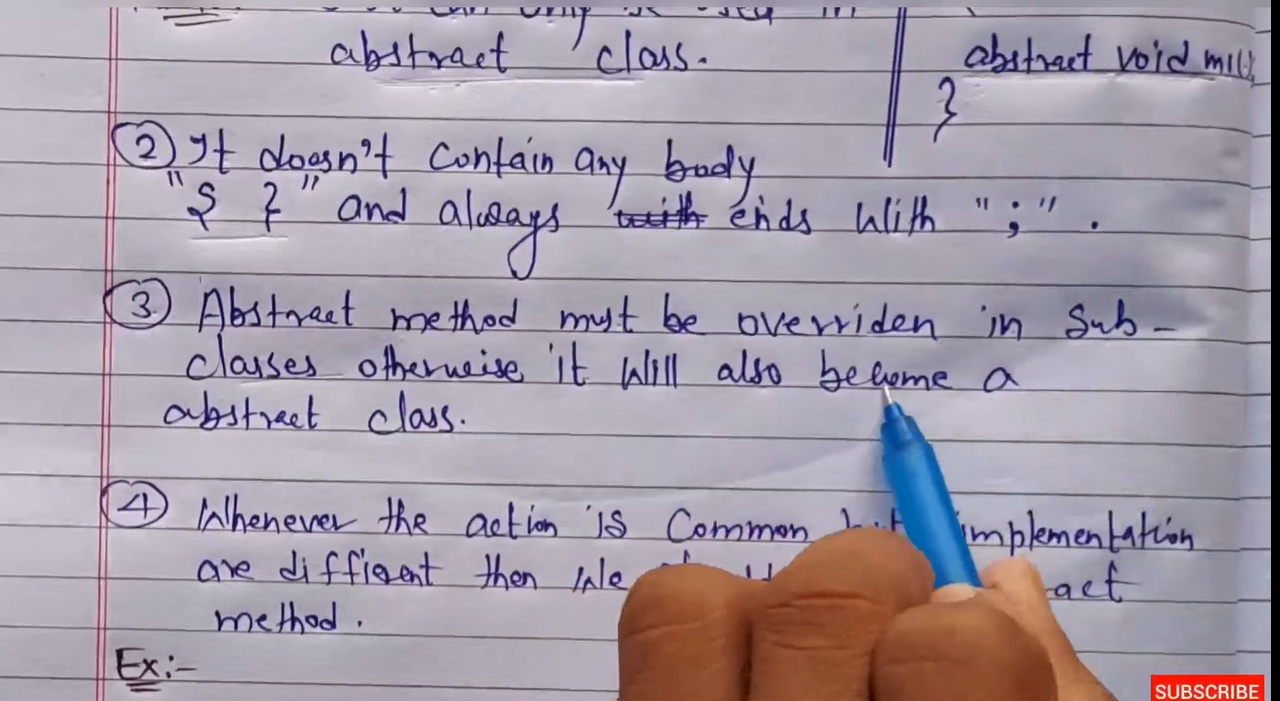 in
abstract class.
abstract void m1();
}
② It doesn't contain any body
"{ }" and always ends with ";".
③ Abstract method must be overriden in Sub-
classes otherwise it will also become a
abstract class.
④ Whenever the action is Common implementation
are diffieant then we
method.
Ex:-
SUBSCRIBE